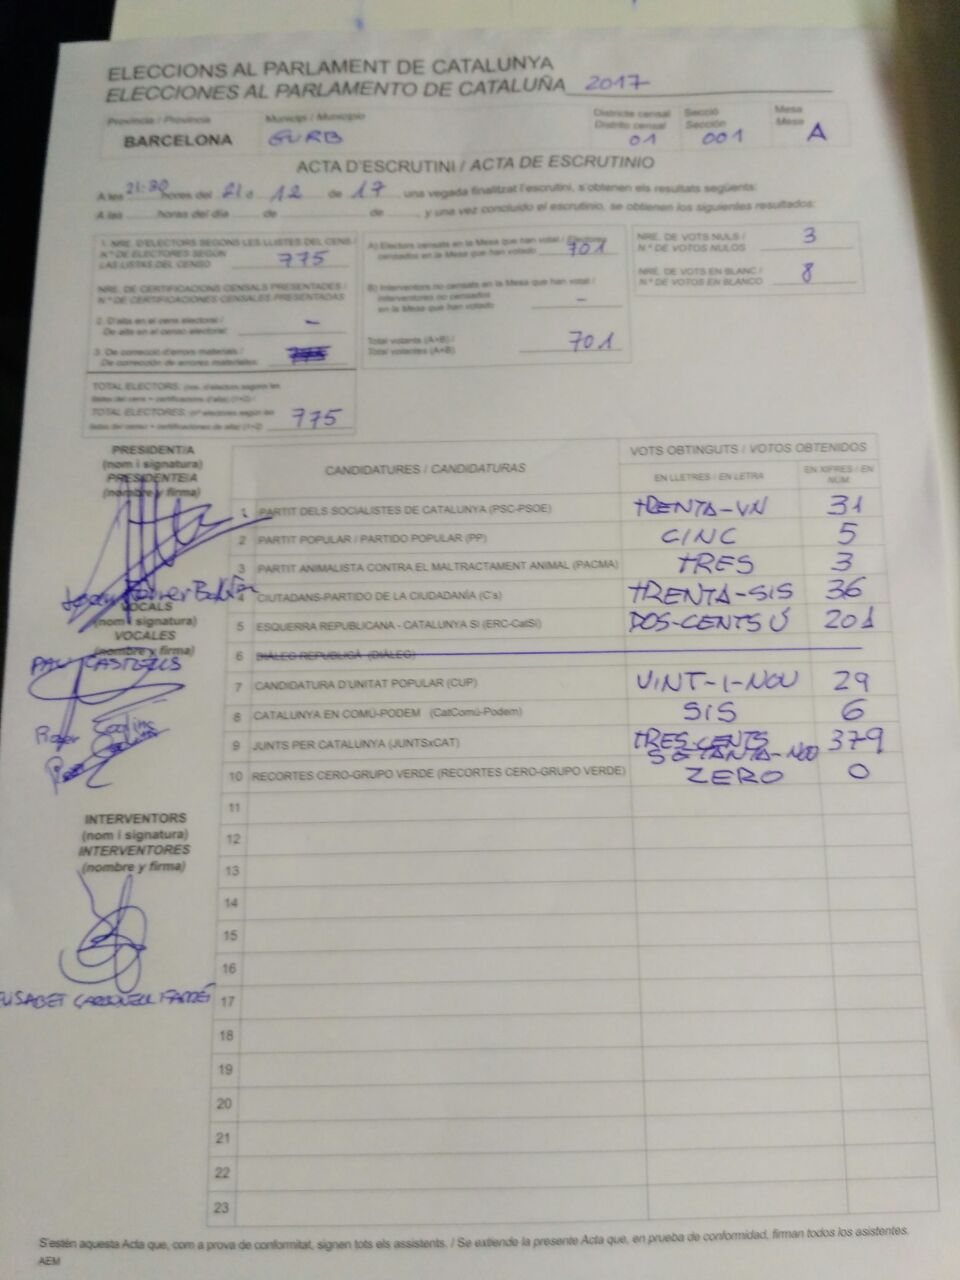 ELECCIONS AL PARLAMENT DE CATALUNYA
ELECCIONES AL PARLAMENTO DE CATALUÑA 2017
Província / Provincia Municipi / Municipio Districte censal Secció Mesa
Distrito censal Sección Mesa
BARCELONA GURB 01 001 A
ACTA D'ESCRUTINI / ACTA DE ESCRUTINIO
A les 21:30 hores del 21 d 12 de 17, una vegada finalitzat l'escrutini, s'obtenen els resultats següents:
A las horas del día de de , y una vez concluido el escrutinio, se obtienen los siguientes resultados:
1. NRE. D'ELECTORS SEGONS LES LLISTES DEL CENS /
N.º DE ELECTORES SEGÚN
LAS LISTAS DEL CENSO 775
NRE. DE CERTIFICACIONS CENSALS PRESENTADES /
N.º DE CERTIFICACIONES CENSALES PRESENTADAS
2. D'alta en el cens electoral /
De alta en el censo electoral: -
3. De correcció d'errors materials /
De corrección de errores materiales:
TOTAL ELECTORS: (nre. d'electors segons les
llistes del cens + certificacions d'alta) (1+2) /
TOTAL ELECTORES: (nº electores según las
listas del censo + certificaciones de alta) (1+2) 775
A) Electors censats en la Mesa que han votat / Electores
censados en la Mesa que han votado 701
B) Interventors no censats en la Mesa que han votat /
Interventores no censados
en la Mesa que han votado -
Total votants (A+B) /
Total votantes (A+B) 701
NRE. DE VOTS NULS /
N.º DE VOTOS NULOS 3
NRE. DE VOTS EN BLANC /
N.º DE VOTOS EN BLANCO 8
PRESIDENT/A
(nom i signatura)
PRESIDENTE/A
(nombre y firma)
VOCALS
(nom i signatura)
VOCALES
(nombre y firma)
PAU CASTELLS
Roger
INTERVENTORS
(nom i signatura)
INTERVENTORES
(nombre y firma)
CANDIDATURES / CANDIDATURAS VOTS OBTINGUTS / VOTOS OBTENIDOS
EN LLETRES / EN LETRA EN XIFRES / EN NÚM.
1 PARTIT DELS SOCIALISTES DE CATALUNYA (PSC-PSOE) TRENTA-UN 31
2 PARTIT POPULAR / PARTIDO POPULAR (PP) CINC 5
3 PARTIT ANIMALISTA CONTRA EL MALTRACTAMENT ANIMAL (PACMA) TRES 3
4 CIUTADANS-PARTIDO DE LA CIUDADANÍA (C's) TRENTA-SIS 36
5 ESQUERRA REPUBLICANA - CATALUNYA SÍ (ERC-CatSí) DOS-CENTS Ú 201
6 DIÀLEG REPUBLICÀ (DIÀLEG)
7 CANDIDATURA D'UNITAT POPULAR (CUP) VINT-I-NOU 29
8 CATALUNYA EN COMÚ-PODEM (CatComú-Podem) SIS 6
9 JUNTS PER CATALUNYA (JUNTSxCAT) TRES-CENTS SETANTA-NO 379
10 RECORTES CERO-GRUPO VERDE (RECORTES CERO-GRUPO VERDE) ZERO 0
11
12
13
14
15
16
17
18
19
20
21
22
23
S'estén aquesta Acta que, com a prova de conformitat, signen tots els assistents. / Se extiende la presente Acta que, en prueba de conformidad, firman todos los asistentes.
AEM